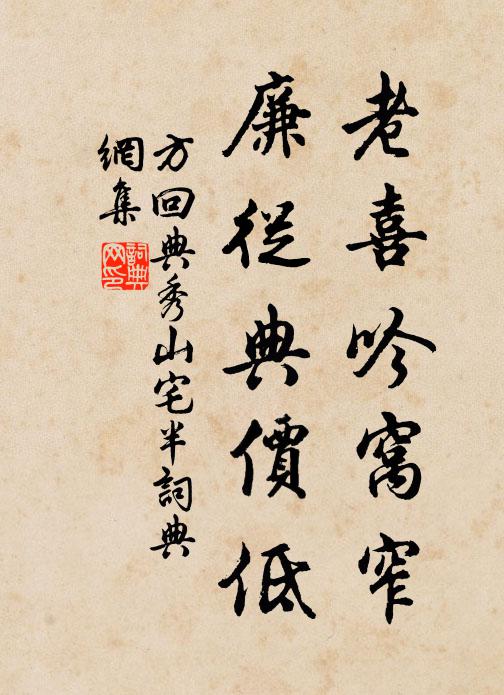 老喜吟窩窄
廉從典價低
方回典秀山宅半詞典
網集
詞典
网印